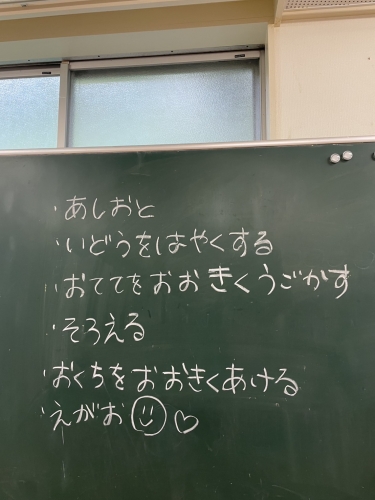 ・あしおと
・いどうをはやくする
・おててをおおきくうごかす
・そろえる
・おくちをおおきくあける
・えがお☺♡